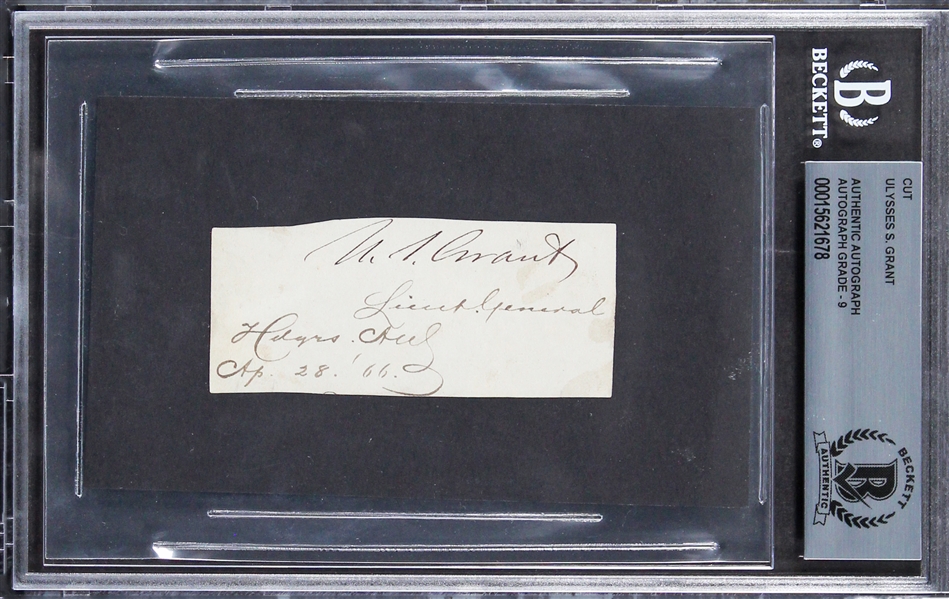 U. S. Grant
Lieut. General
Hdqrs. AUS
Ap. 28. '66.
BECKETT®
CUT
ULYSSES S. GRANT
AUTHENTIC AUTOGRAPH
AUTOGRAPH GRADE - 9
00015621678
BECKETT
B
AUTHENTIC